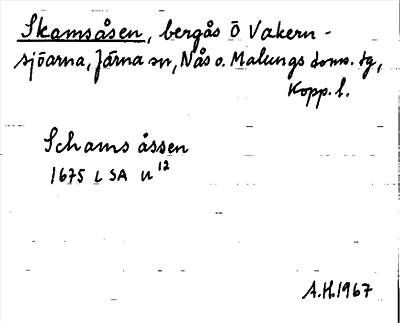 Skamsåsen, bergås Ö Vakern-
sjöarna, Järna sn, Nås o. Malungs doms. tg,
Kopp. l.
Schams åssen
1675 LSA U 12
A.H. 1967